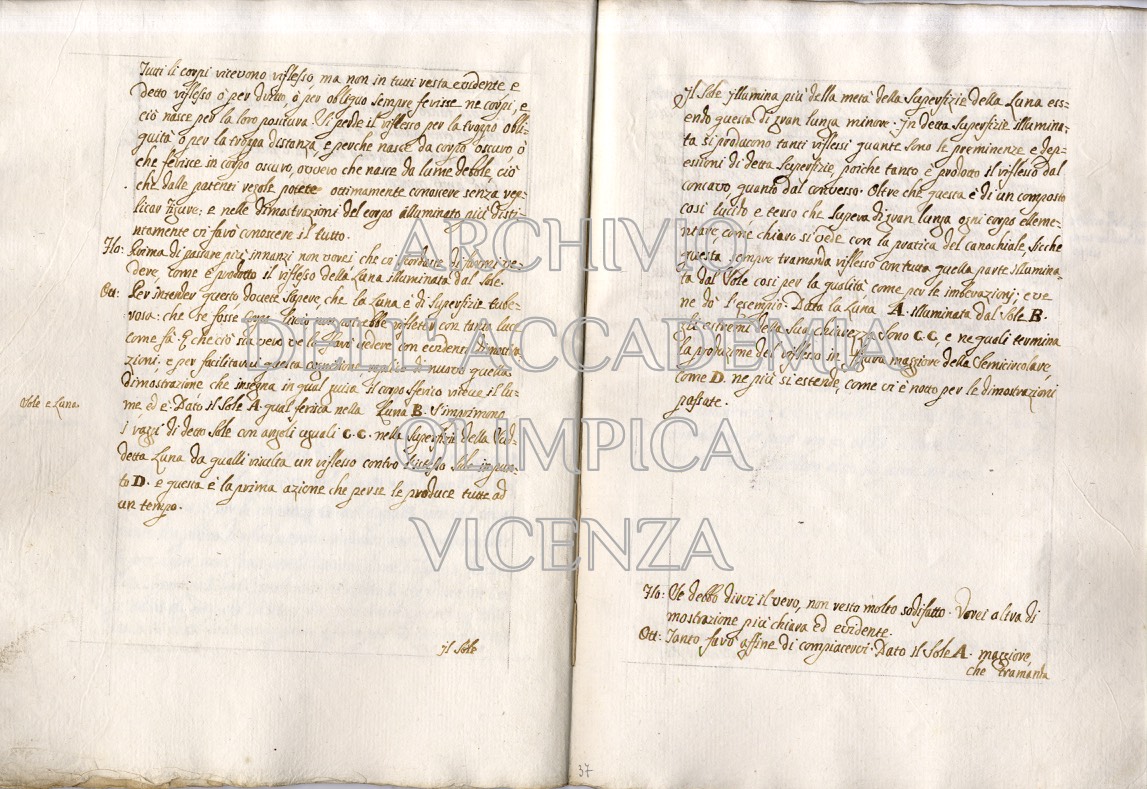 Tutti li corpi ricevono riflesso, ma non in tutti resta evidente e
detto riflesso ò per diritto, ò per obliquo sempre ferisse ne corpi, e
ciò nasce per la loro positura. Si perde il riflesso per la troppo obli-
quità ò per la troppa distanza, e perche nasce da corpo oscuro ò
che ferisce in corpo oscuro, overo che nasce da lume debole, ciò
che dalle passate regole potete ottimamente conoscere senza rep-
licar figure; e nelle dimostrazioni del corpo illuminato più disti-
ntamente vi farò conoscere il tutto.
Flo: Prima di passare più innanzi non vorei che vi scordaste di farmi ve-
dere, come è prodotto il riflesso della Luna illuminata dal Sole.
Ott: Per intender questo dovete sapere, che la Luna è di superfizie tube-
rosa: che se fosse corpo liscio non potrebbe rifletter con tanta luce
come fà. E che ciò sia vero ve lo farò vedere con evidenti dimostra
zioni, e per facilitarvi questa cognitione replico di nuovo quella
dimostrazione che insegna in qual guisa il corpo sferico riceve il lu-
me ed è. Dato il Sole A. qual ferisca nella Luna B. S'imprimono
Sole e Luna.
i raggi di detto Sole con angoli eguali C. C. nella superfizie della sud-
detta Luna da qualli risulta un riflesso contro l'istesso Sole in pun-
to D. e questa è la prima azione che perse le produce tutte ad
un tempo.
il Sole
Il Sole illumina più della metà della Superfizie della Luna ess-
endo questa di gran lunga minore. In detta superfizie illumina-
ta si producono tanti riflessi quante sono le preminenze e dep-
ressioni di detta Superfizie, poiche tanto è prodotto il riflesso dal
concavo, quanto dal convesso. Oltre che questa è di un composto
così lucido e terso che supera di gran lunga ogni corpo elleme-
ntare, come chiaro si vede con la pratica del canochiale, sicche
questa sempre tramanda riflesso con tutta quella parte illumina-
ta dal Sole così per la qualità come per le imberazioni; e ve
ne dò l'esempio. Data la Luna A. illuminata dal Sole B.
gli estremi della sua chiarezza sono C. C. e ne quali termina
la produzione del riflesso in figura maggiore della semicircolare,
come D. ne più si estende, come vi è notto per le dimostrazioni
passate.
Flo: Se debbo dirvi il vero, non resto molto sodisfatto. Vorei altra di
mostrazione più chiara ed evidente.
Ott: Tanto farò affine di compiacervi. Dato il Sole A. maggiore,
che tramanda
37
ARCHIVIO
DELL'ACCADEMIA
OLIMPICA
VICENZA